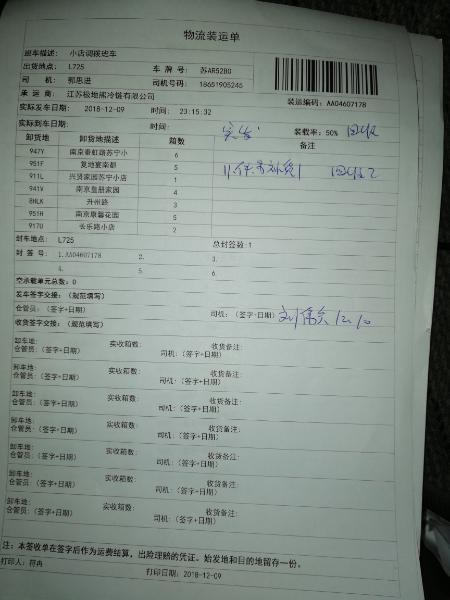 物流装运单
班车描述: 小店调拨班车
出货地点: L725 车 牌 号: 苏AR52B0
司 机: 郭思进 司机号码: 18651905245
承 运 商: 江苏极地熊冷链有限公司 装运编码: AA04607178
实际发车日期: 2018-12-09 时间: 23:15:32
实际到车日期: 时间: 装载率: 50% 回收
卸货地 卸货地描述 箱数 备注
947Y 南京泰虹路苏宁小 6
951F 复地宴南都 5
911L 兴贤家园苏宁小店 1
941V 南京皇册家园 4
8HLK 升州路 3
955H 南京康馨花园 5
917U 长乐路小店 2
封车地点: L725 总封签数:1
封 签 号: 1.AA04607178 2. 3.
4. 5. 6.
空承载单元总数: 0
发车签字交接: (规范填写)
仓管员: (签字+日期) 司机: (签字+日期) 12.10
收货签字交接: (规范填写)
卸车地: 实收箱数: 收货备注:
仓管员: (签字+日期) 司机: (签字+日期)
卸车地: 实收箱数: 收货备注:
仓管员: (签字+日期) 司机: (签字+日期)
卸车地: 实收箱数: 收货备注:
仓管员: (签字+日期) 司机: (签字+日期)
卸车地: 实收箱数: 收货备注:
仓管员: (签字+日期) 司机: (签字+日期)
卸车地: 实收箱数: 收货备注:
仓管员: (签字+日期) 司机: (签字+日期)
卸车地: 实收箱数: 收货备注:
仓管员: (签字+日期) 司机: (签字+日期)
卸车地: 实收箱数: 收货备注:
仓管员: (签字+日期) 司机: (签字+日期)
注: 本签收单在签字后作为运费结算, 出险理赔的凭证。始发地和目的地留存一份。
打印人: 符冉 打印日期: 2018-12-09